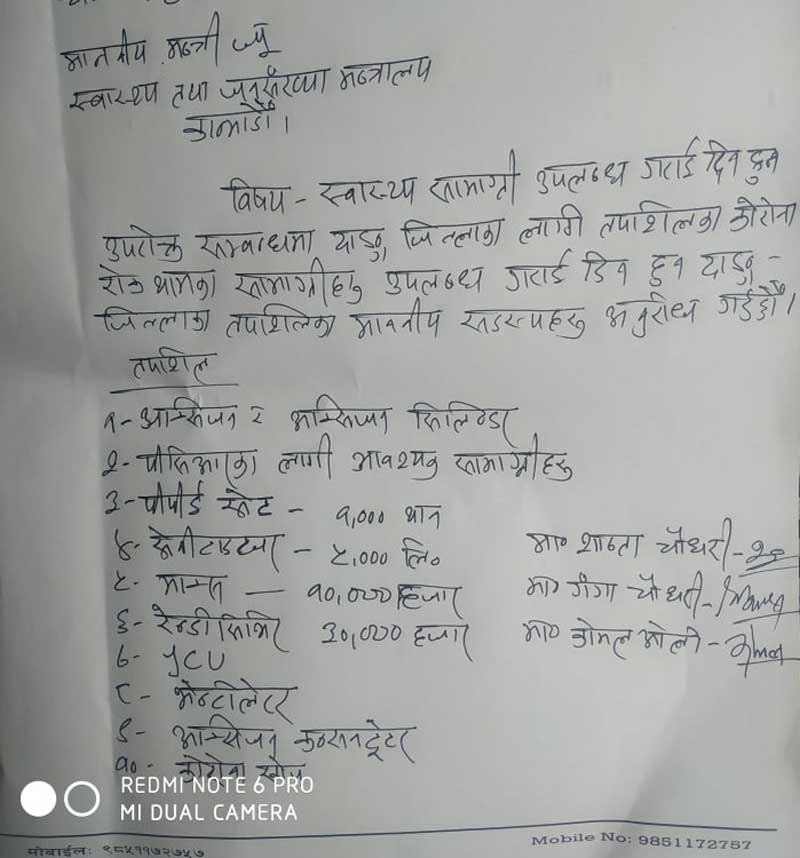 माननीय मन्त्री ज्यू
स्वास्थ्य तथा जनसंख्या मन्त्रालय
काठमाडौँ ।
विषय - स्वास्थ्य सामाग्री उपलब्ध गराई दिन हुन
उपरोक्त सम्बन्धमा दाङ्ग जिल्लाका लागी तपाशिलका कोरोना
रोकथामका सामाग्रीहरु उपलब्ध गराई दिन हुन दाङ्ग -
जिल्लाका तपाशिलका माननीय सदस्यहरु अनुरोध गर्दछौँ ।
तपाशिल
१- अक्सिजन र अक्सिजन सिलिण्डर
२- पीसिआरका लागी आवश्यक सामाग्रीहरु
३- पीपीई सेट - १,००० थान
४- सेनीटाइजर - ५,००० लि० मा० शान्ता चौधरी -
५- मास्क - १०,००० हजार मा० गंगा चौधरी -
६- रेम्डीसिभिर ३०,००० हजार मा० कोमल ओली -
७- ICU
८- भेन्टीलेटर
९- अक्सिजन कन्सनट्रेटर
१०- कोरोना खोप
REDMI NOTE 6 PRO
MI DUAL CAMERA
मोबाईल: ९८५११७२७५७ Mobile No: 9851172757